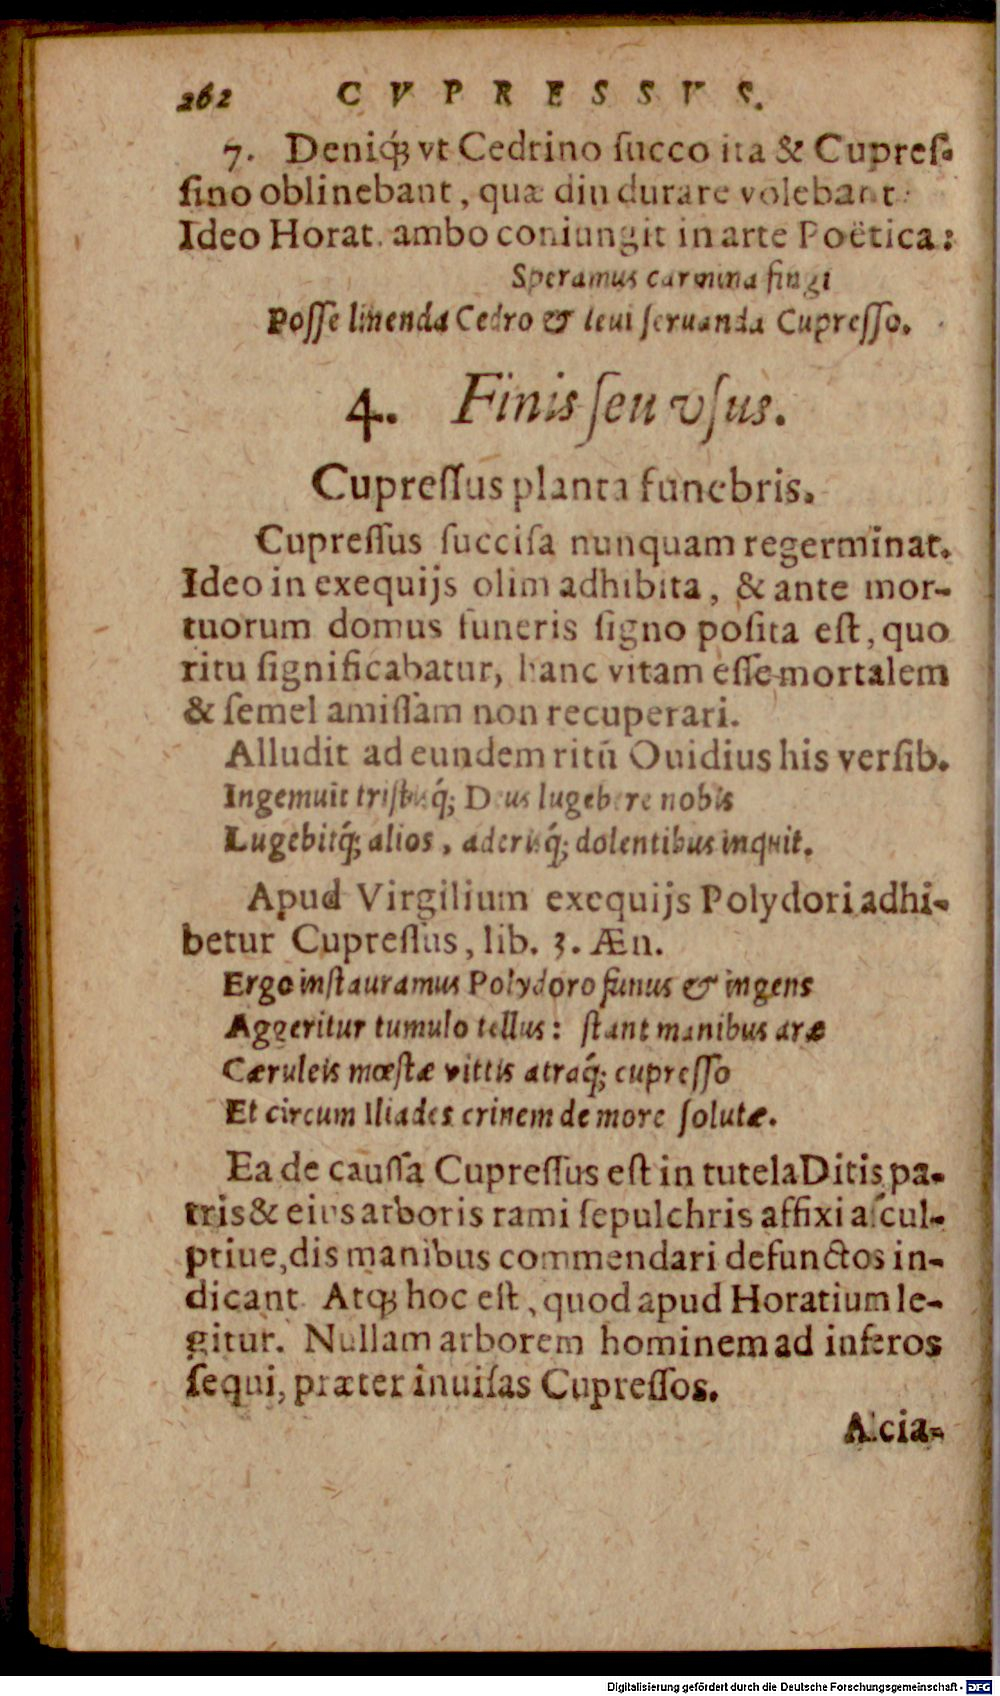 262 CVPRESSVS.
7. Deniqꝫ vt Cedrino ſucco ita & Cupreſ-
ſino oblinebant, quæ diu durare volebant:
Ideo Horat. ambo coniungit in arte Poëtica:
Speramus carmina fingi
Poſſe linenda Cedro & leui ſeruanda Cupreſſo.
4. Finis ſeu vſus.
Cupreſſus planta funebris.
Cupreſſus ſucciſa nunquam regerminat.
Ideo in exequijs olim adhibita, & ante mor-
tuorum domus funeris ſigno poſita eſt, quo
ritu ſignificabatur, hanc vitam eſſe mortalem
& ſemel amiſſam non recuperari.
Alludit ad eundem ritū Ouidius his verſib.
Ingemuit triſtisq́; Deus lugebere nobis
Lugebitq́; alios, aderisq́; dolentibus inquit.
Apud Virgilium exequijs Polydori adhi-
betur Cupreſſus, lib. 3. Æn.
Ergo inſtauramus Polydoro funus & ingens
Aggeritur tumulo tellus: ſtant manibus aræ
Cæruleis mœſtæ vittis atraq́; cupreſſo
Et circum Iliades crinem de more ſolutæ.
Ea de cauſſa Cupreſſus eſt in tutela Ditis pa-
tris & eius arboris rami ſepulchris affixi aſcul-
ptiue, dis manibus commendari defunctos in-
dicant. Atqꝫ hoc eſt, quod apud Horatium le-
gitur. Nullam arborem hominem ad inferos
ſequi, præter inuiſas Cupreſſos.
Alcia-
Digitalisierung gefördert durch die Deutsche Forschungsgemeinschaft - DFG